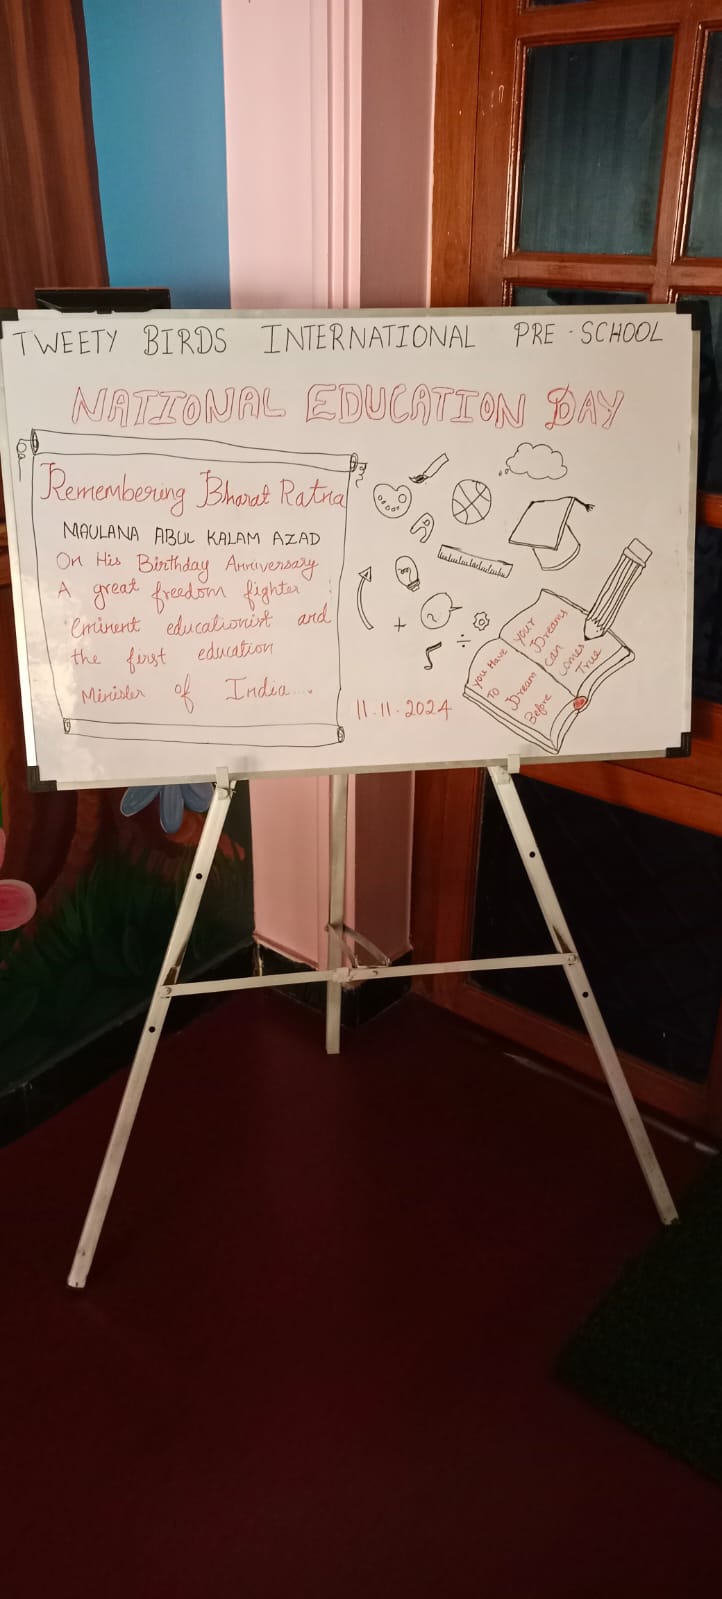 TWEETY BIRDS INTERNATIONAL PRE-SCHOOL
NATIONAL EDUCATION DAY
Remembering Bharat Ratna
MAULANA ABUL KALAM AZAD
On His Birthday Anniversary
A great freedom fighter
Eminent educationist and
the first education
Minister of India....
11.11.2024
You Have
TO
Dream
Before
Your
Dreams
can
comes
True
+
?
÷